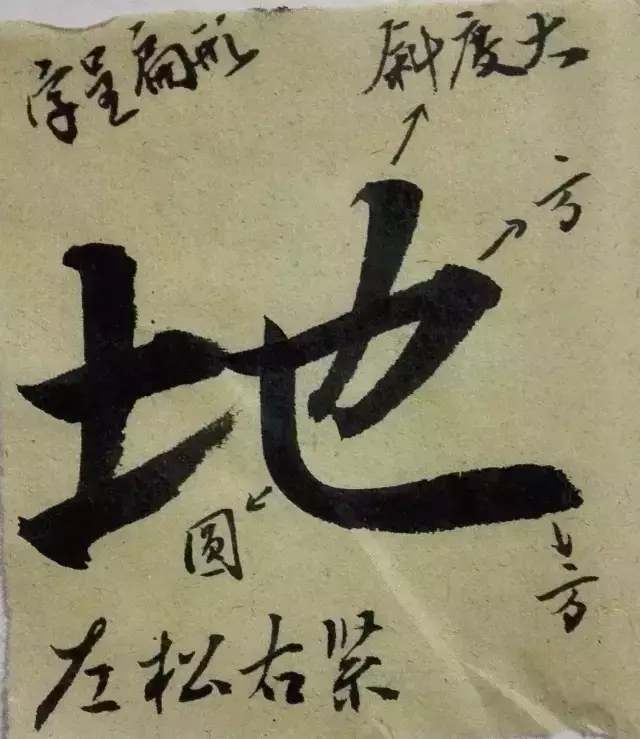 字呈扁形
斜度大
方
地
圆
方
左松右紧